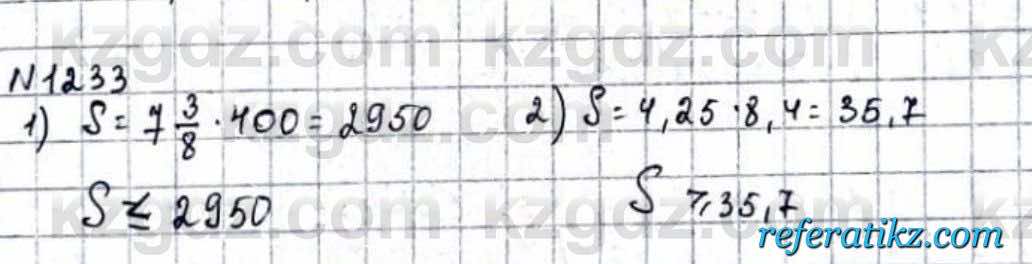 kzgdz.com kzgdz.com kz
N1233
1) S = 7 3/8 · 400 = 2950 2) S = 4,25 · 8,4 = 35,7
kzgdz.com kzgdz.com kz
S ≤ 2950 S ≥ 35,7
referatikz.com